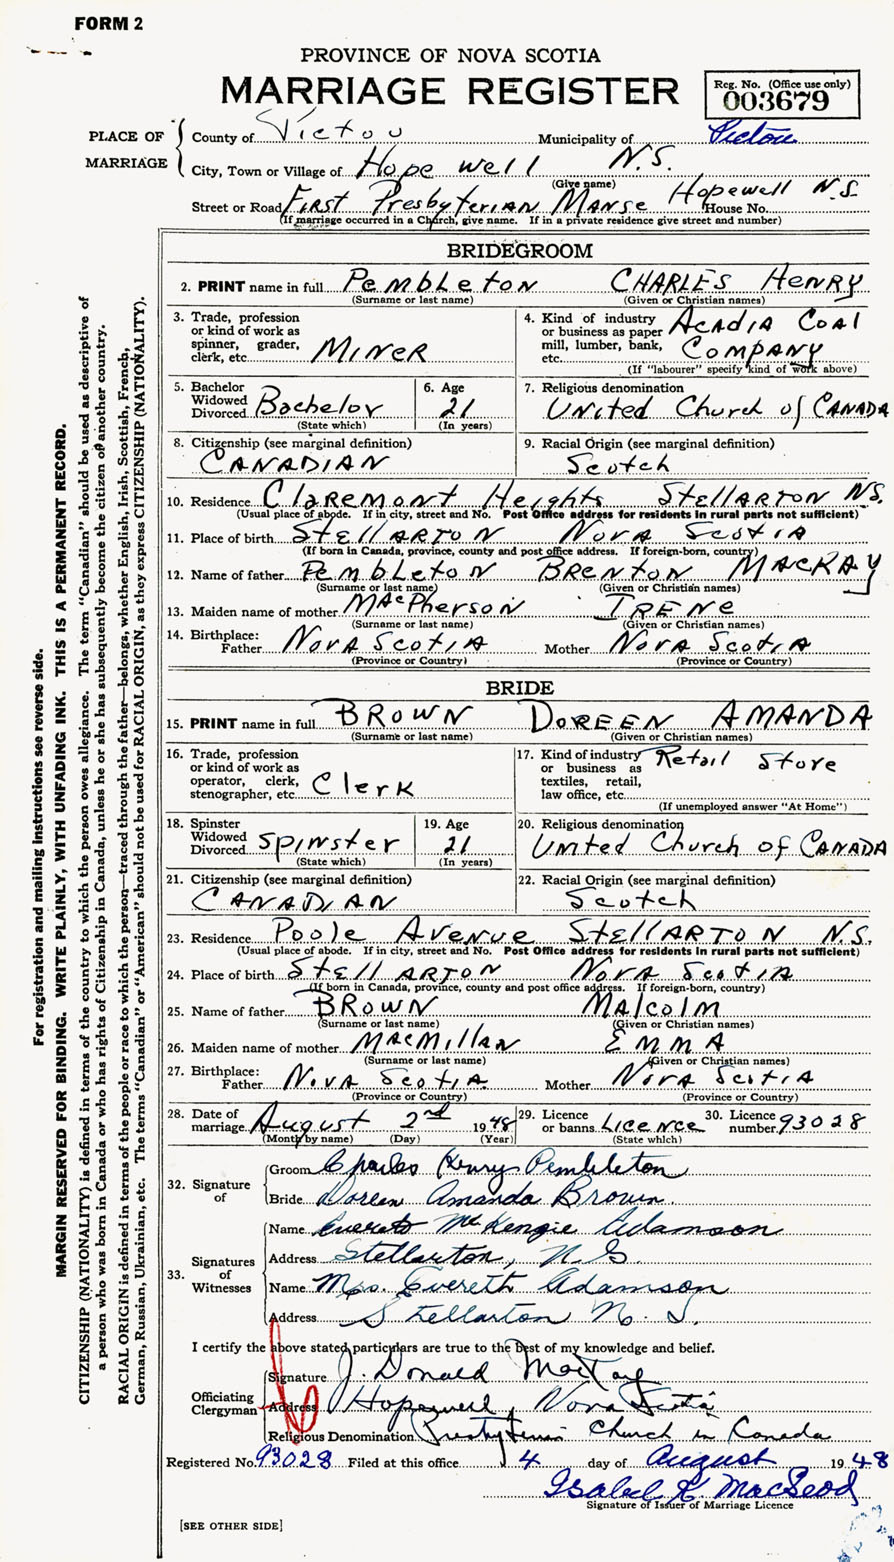 FORM 2
PROVINCE OF NOVA SCOTIA
MARRIAGE REGISTER
Reg. No. (Office use only)
003679
PLACE OF MARRIAGE
County of Pictou Municipality of Pictou
City, Town or Village of Hopewell N.S.
(Give name)
Street or Road First Presbyterian Manse Hopewell N.S. House No.
(If marriage occurred in a Church, give name. If in a private residence give street and number)
BRIDEGROOM
2. PRINT name in full Pembleton CHARLES HENRY
(Surname or last name) (Given or Christian names)
3. Trade, profession or kind of work as spinner, grader, clerk, etc. MINER
4. Kind of industry or business as paper mill, lumber, bank, etc. Acadia Coal Company
(If "labourer" specify kind of work above)
5. Bachelor Widowed Divorced Bachelor
(State which)
6. Age 21
(In years)
7. Religious denomination
United Church of CANADA
8. Citizenship (see marginal definition)
CANADIAN
9. Racial Origin (see marginal definition)
Scotch
10. Residence Claremont Heights STELLARTON N.S.
(Usual place of abode. If in city, street and No. Post Office address for residents in rural parts not sufficient)
11. Place of birth STELLARTON NOVA SCOTIA
(If born in Canada, province, county and post office address. If foreign-born, country)
12. Name of father Pembleton BRENTON MACKAY
(Surname or last name) (Given or Christian names)
13. Maiden name of mother MacPherson IRENE
(Surname or last name) (Given or Christian names)
14. Birthplace:
Father NOVA SCOTIA Mother NOVA SCOTIA
(Province or Country) (Province or Country)
BRIDE
15. PRINT name in full BROWN DOREEN AMANDA
(Surname or last name) (Given or Christian names)
16. Trade, profession or kind of work as operator, clerk, stenographer, etc. Clerk
17. Kind of industry or business as textiles, retail, law office, etc. Retail Store
(If unemployed answer "At Home")
18. Spinster Widowed Divorced SPINSTER
(State which)
19. Age 21
(In years)
20. Religious denomination
United Church of CANADA
21. Citizenship (see marginal definition)
CANADIAN
22. Racial Origin (see marginal definition)
Scotch
23. Residence Poole Avenue STELLARTON N.S.
(Usual place of abode. If in city, street and No. Post Office address for residents in rural parts not sufficient)
24. Place of birth STELLARTON NOVA SCOTIA
(If born in Canada, province, county and post office address. If foreign-born, country)
25. Name of father BROWN MALCOLM
(Surname or last name) (Given or Christian names)
26. Maiden name of mother MacMILLAN EMMA
(Surname or last name) (Given or Christian names)
27. Birthplace:
Father NOVA SCOTIA Mother NOVA SCOTIA
(Province or Country) (Province or Country)
28. Date of marriage August 2nd 1948
(Month by name) (Day) (Year)
29. Licence or banns LICENCE
(State which)
30. Licence number 93028
32. Signature of
Groom Charles Henry Pembleton
Bride Doreen Amanda Brown
33. Signatures of Witnesses
Name Everett McKenzie Adamson
Address Stellarton, N.S.
Name Mrs. Everett Adamson
Address Stellarton N.S.
I certify the above stated particulars are true to the best of my knowledge and belief.
Officiating Clergyman
Signature J. Donald MacKay
Address Hopewell, Nova Scotia
Religious Denomination Presbyterian Church in Canada
Registered No. 93028 Filed at this office 4 day of August 1948
Isabel K. MacLeod
Signature of Issuer of Marriage Licence
[SEE OTHER SIDE]
For registration and mailing instructions see reverse side.
MARGIN RESERVED FOR BINDING. WRITE PLAINLY, WITH UNFADING INK. THIS IS A PERMANENT RECORD.
CITIZENSHIP (NATIONALITY) is defined in terms of the country to which the person owes allegiance. The term "Canadian" should be used as descriptive of
a person who was born in Canada or who has rights of Citizenship in Canada, unless he or she has subsequently become the citizen of another country.
RACIAL ORIGIN is defined in terms of the people or race to which the person—traced through the father—belongs, whether English, Irish, Scottish, French,
German, Russian, Ukrainian, etc. The terms "Canadian" or "American" should not be used for RACIAL ORIGIN, as they express CITIZENSHIP (NATIONALITY).